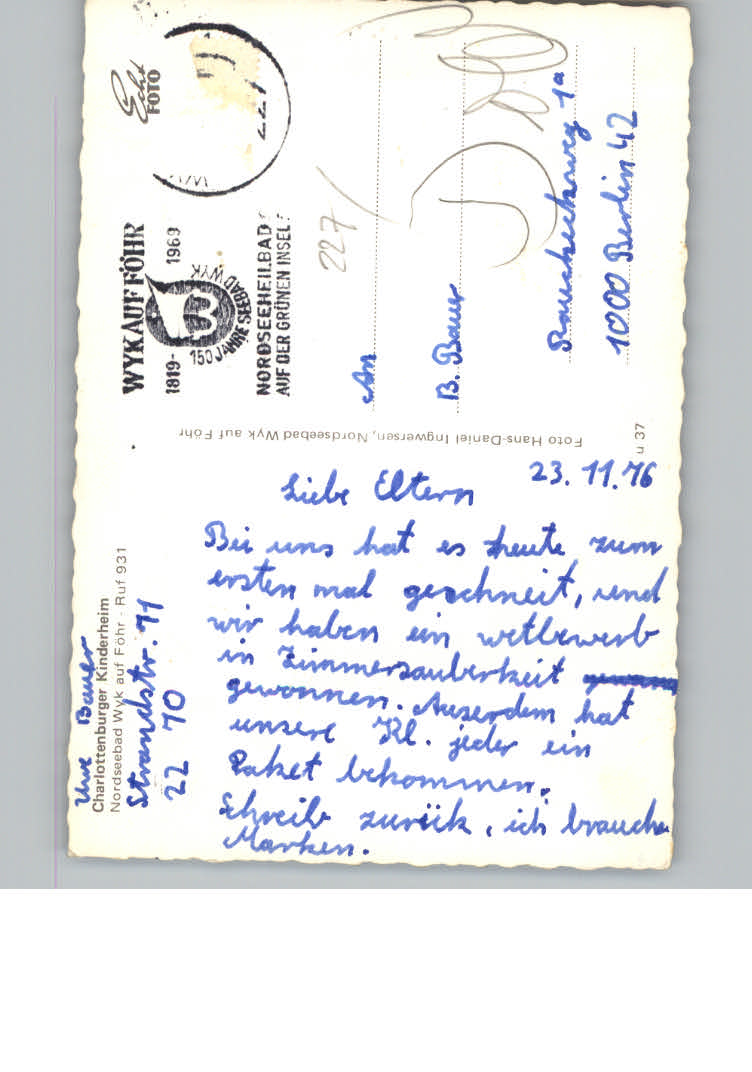 Uwe Bauer
Charlottenburger Kinderheim
Nordseebad Wyk auf Föhr · Ruf 931
Strandstr. 71
22 70
23.11.76
Liebe Eltern
Bei uns hat es heute zum
ersten mal geschneit, und
wir haben ein wetbewerb
in Zimmersauberkeit
gewonnen. Auserdem hat
unsere Kl. jeder ein
Paket bekommen.
Schreib zurük, ich brauche
Marken.
Foto Hans-Daniel Ingwersen, Nordseebad Wyk auf Föhr
u 37
Echt
FOTO
WYK AUF FÖHR
1819- 1969
150 JAHRE SEEBAD WYK
NORDSEEHEILBAD
AUF DER GRÜNEN INSEL!
227/
An
B. Bauer
1a
1000 Berlin 42